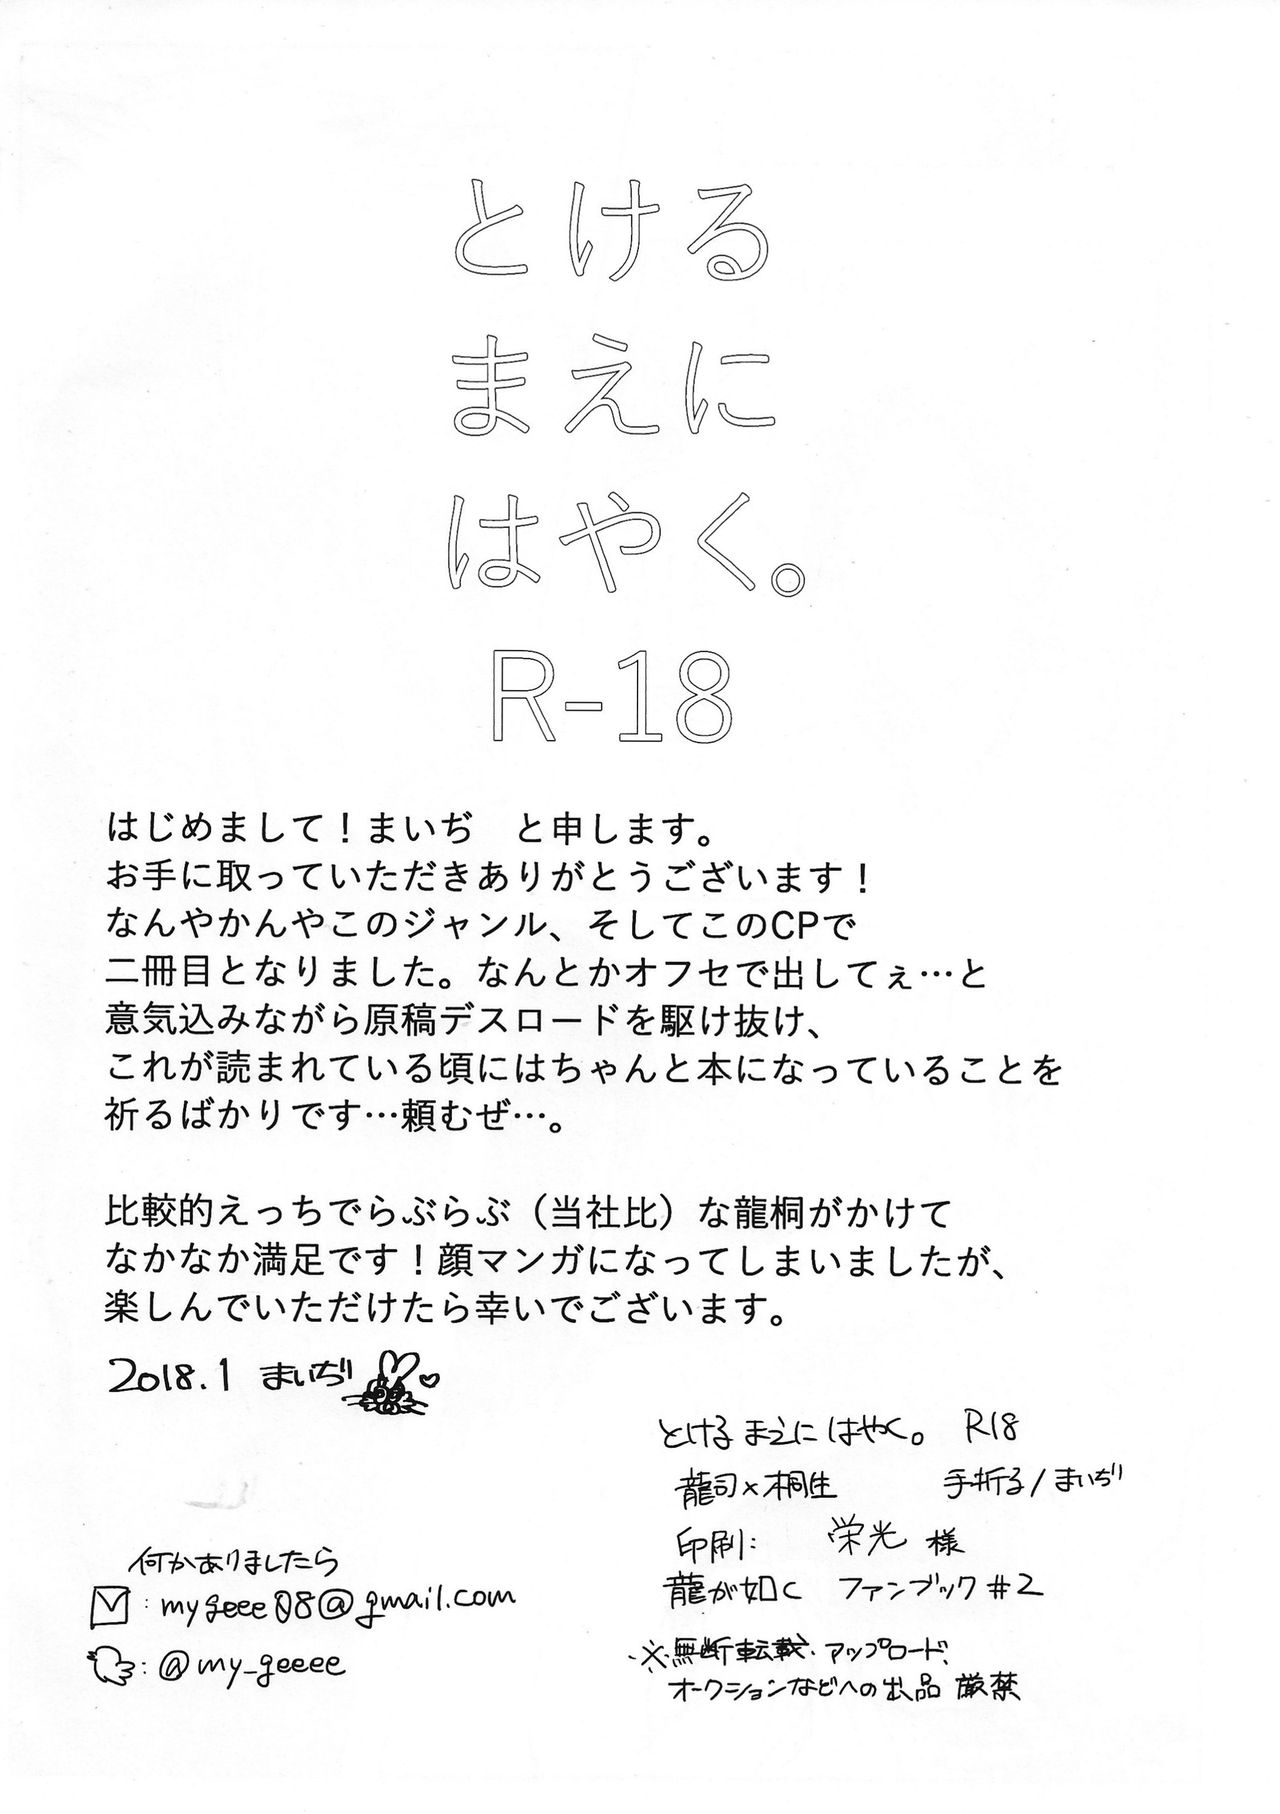 とける
まえに
はやく。
R-18
はじめまして！まいぢ　と申します。
お手に取っていただきありがとうございます！
なんやかんやこのジャンル、そしてこのCPで
二冊目となりました。なんとかオフセで出してぇ…と
意気込みながら原稿デスロードを駆け抜け、
これが読まれている頃にはちゃんと本になっていることを
祈るばかりです…頼むぜ…。
比較的えっちでらぶらぶ（当社比）な龍桐がかけて
なかなか満足です！顔マンガになってしまいましたが、
楽しんでいただけたら幸いでございます。
2018.1 まいぢ
とける まえに はやく。 R18
龍司×桐生 手折る/まいぢ
印刷: 栄光 様
龍が如く ファンブック #2
※無断転載・アップロード、
オークションなどへの出品 厳禁
何かありましたら
: mygeee08@gmail.com
: @my_geeee